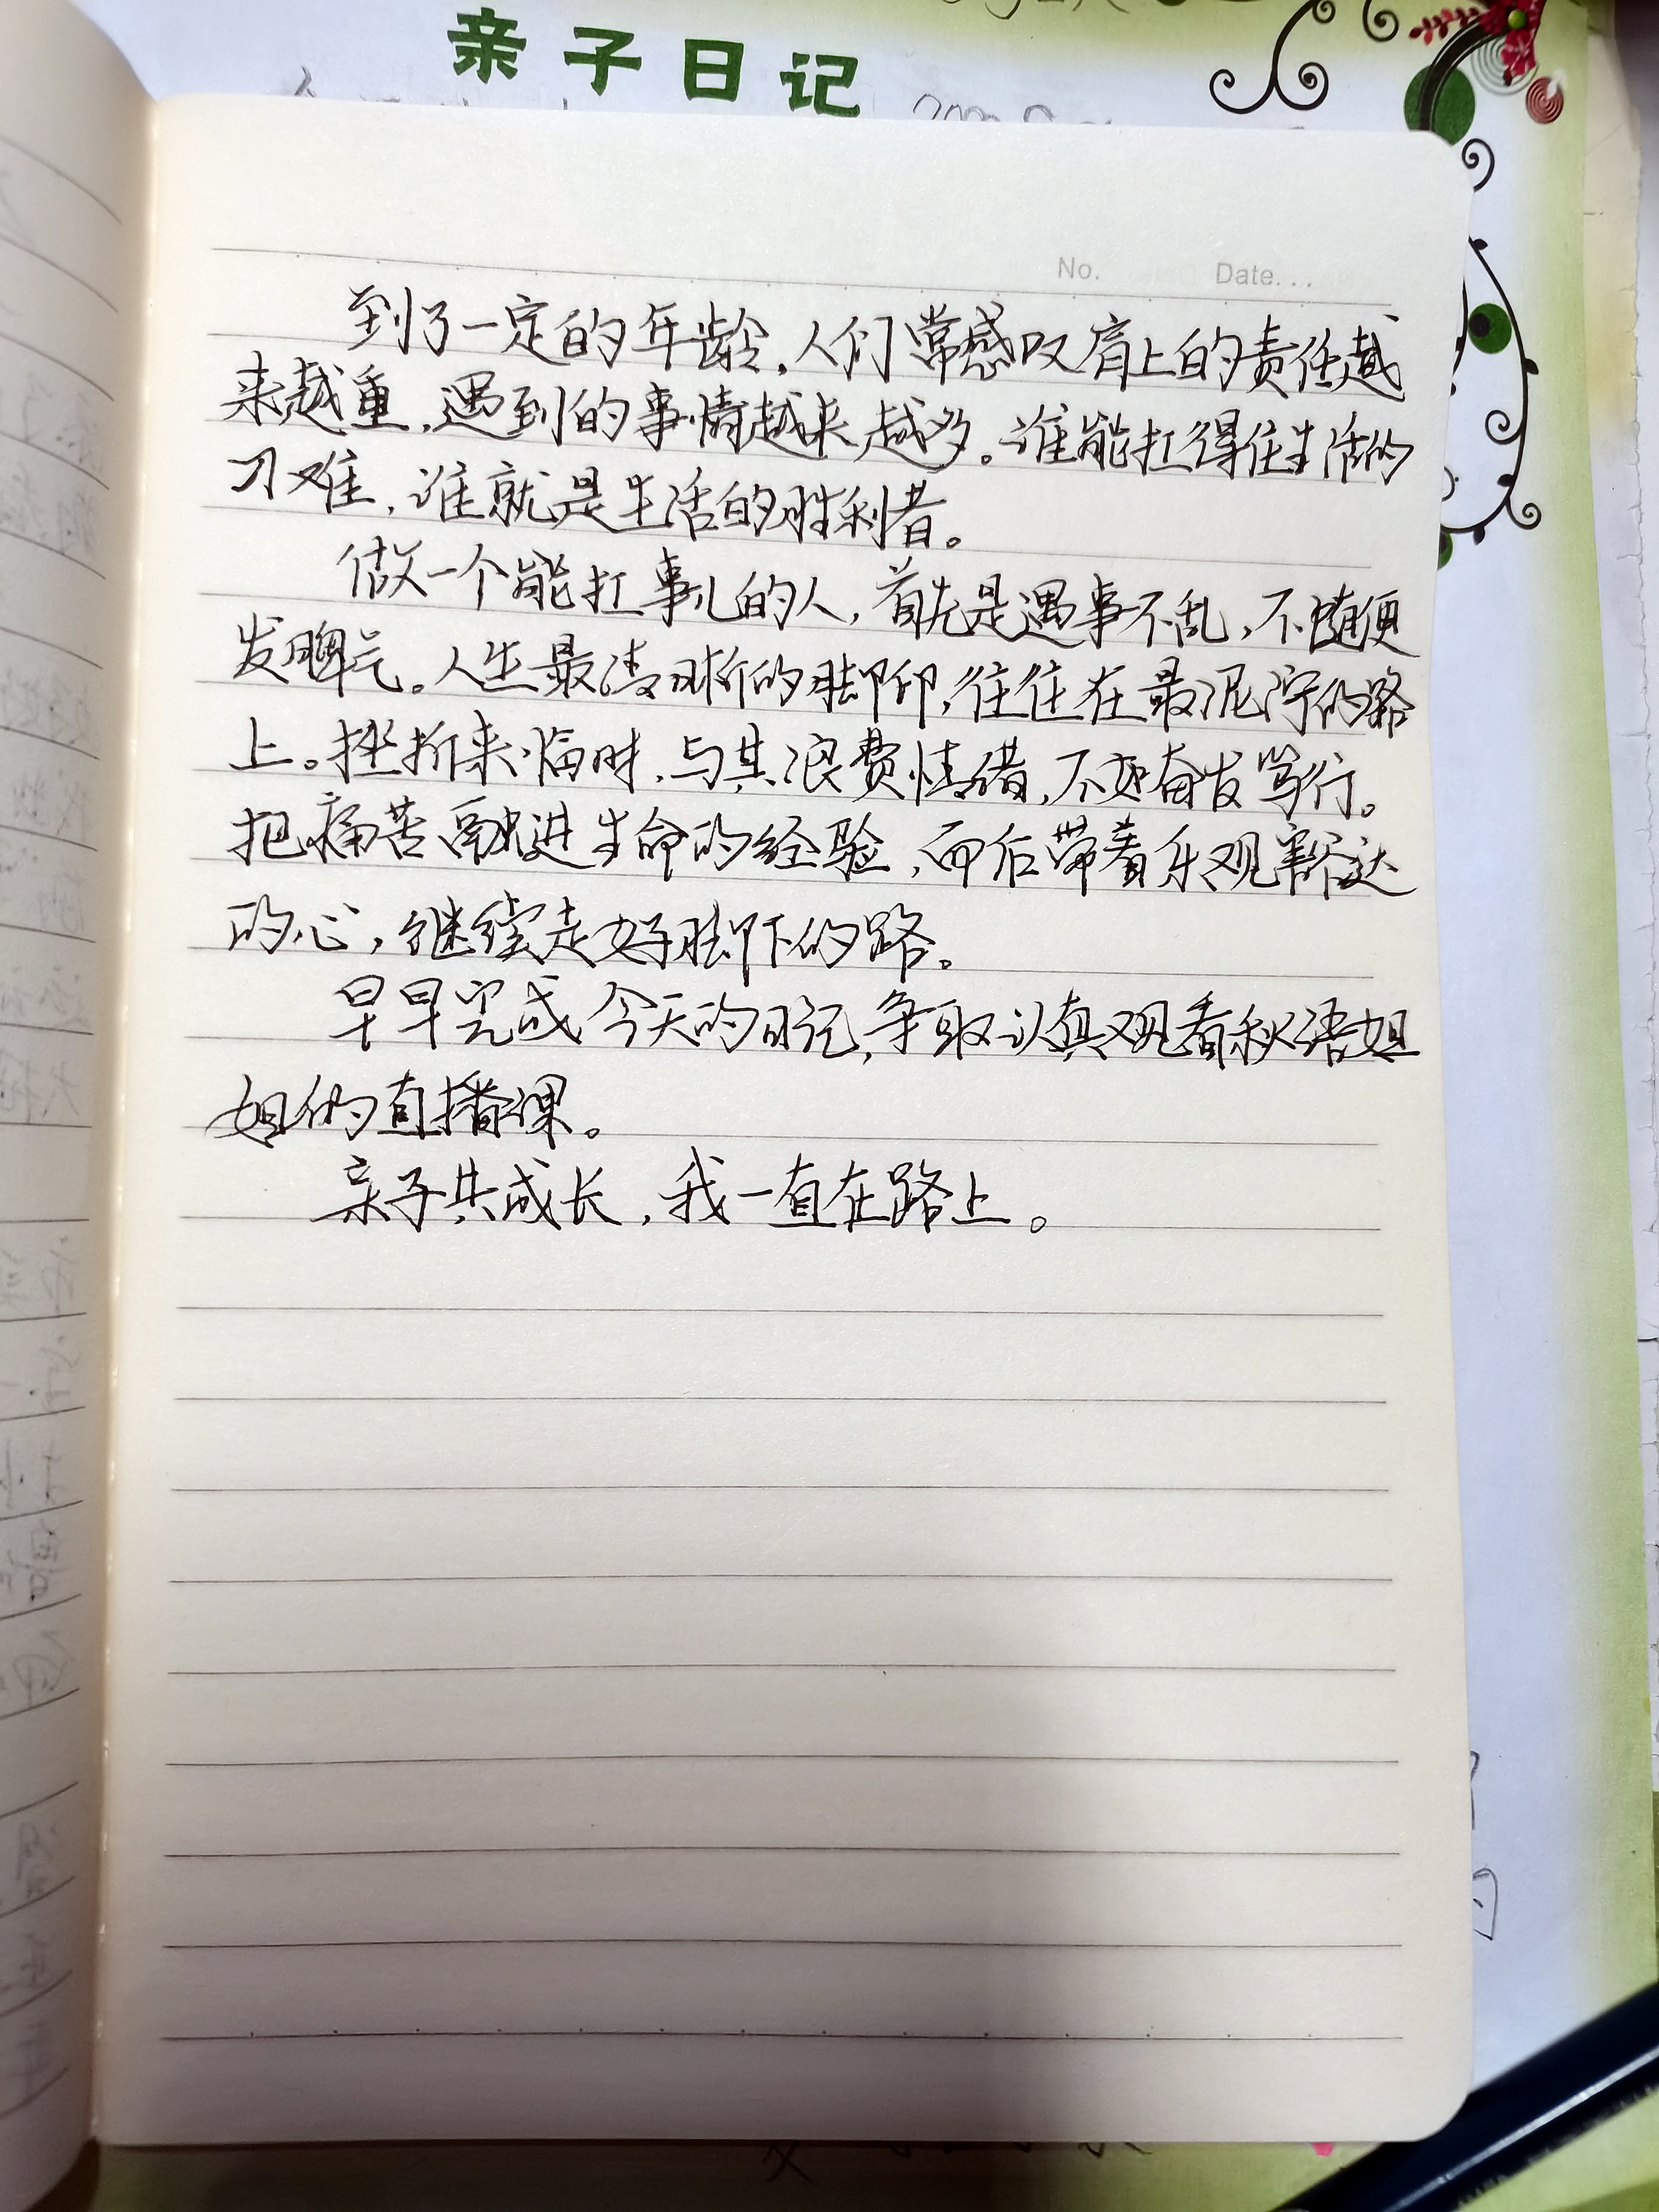 亲子日记
No. Date...
到了一定的年龄，人们常感叹肩上的责任越
来越重，遇到的事情越来越多。谁能扛得住生活的
刁难，谁就是生活的胜利者。
做一个能扛事儿的人，首先是遇事不乱，不随便
发脾气。人生最清晰的脚印，往往在最泥泞的路
上。挫折来临时，与其浪费情绪，不如奋发笃行。
把痛苦融进生命的经验，而后带着乐观豁达
的心，继续走好脚下的路。
早早完成今天的日记，争取认真观看秋语姐
姐的直播课。
亲子共成长，我一直在路上。